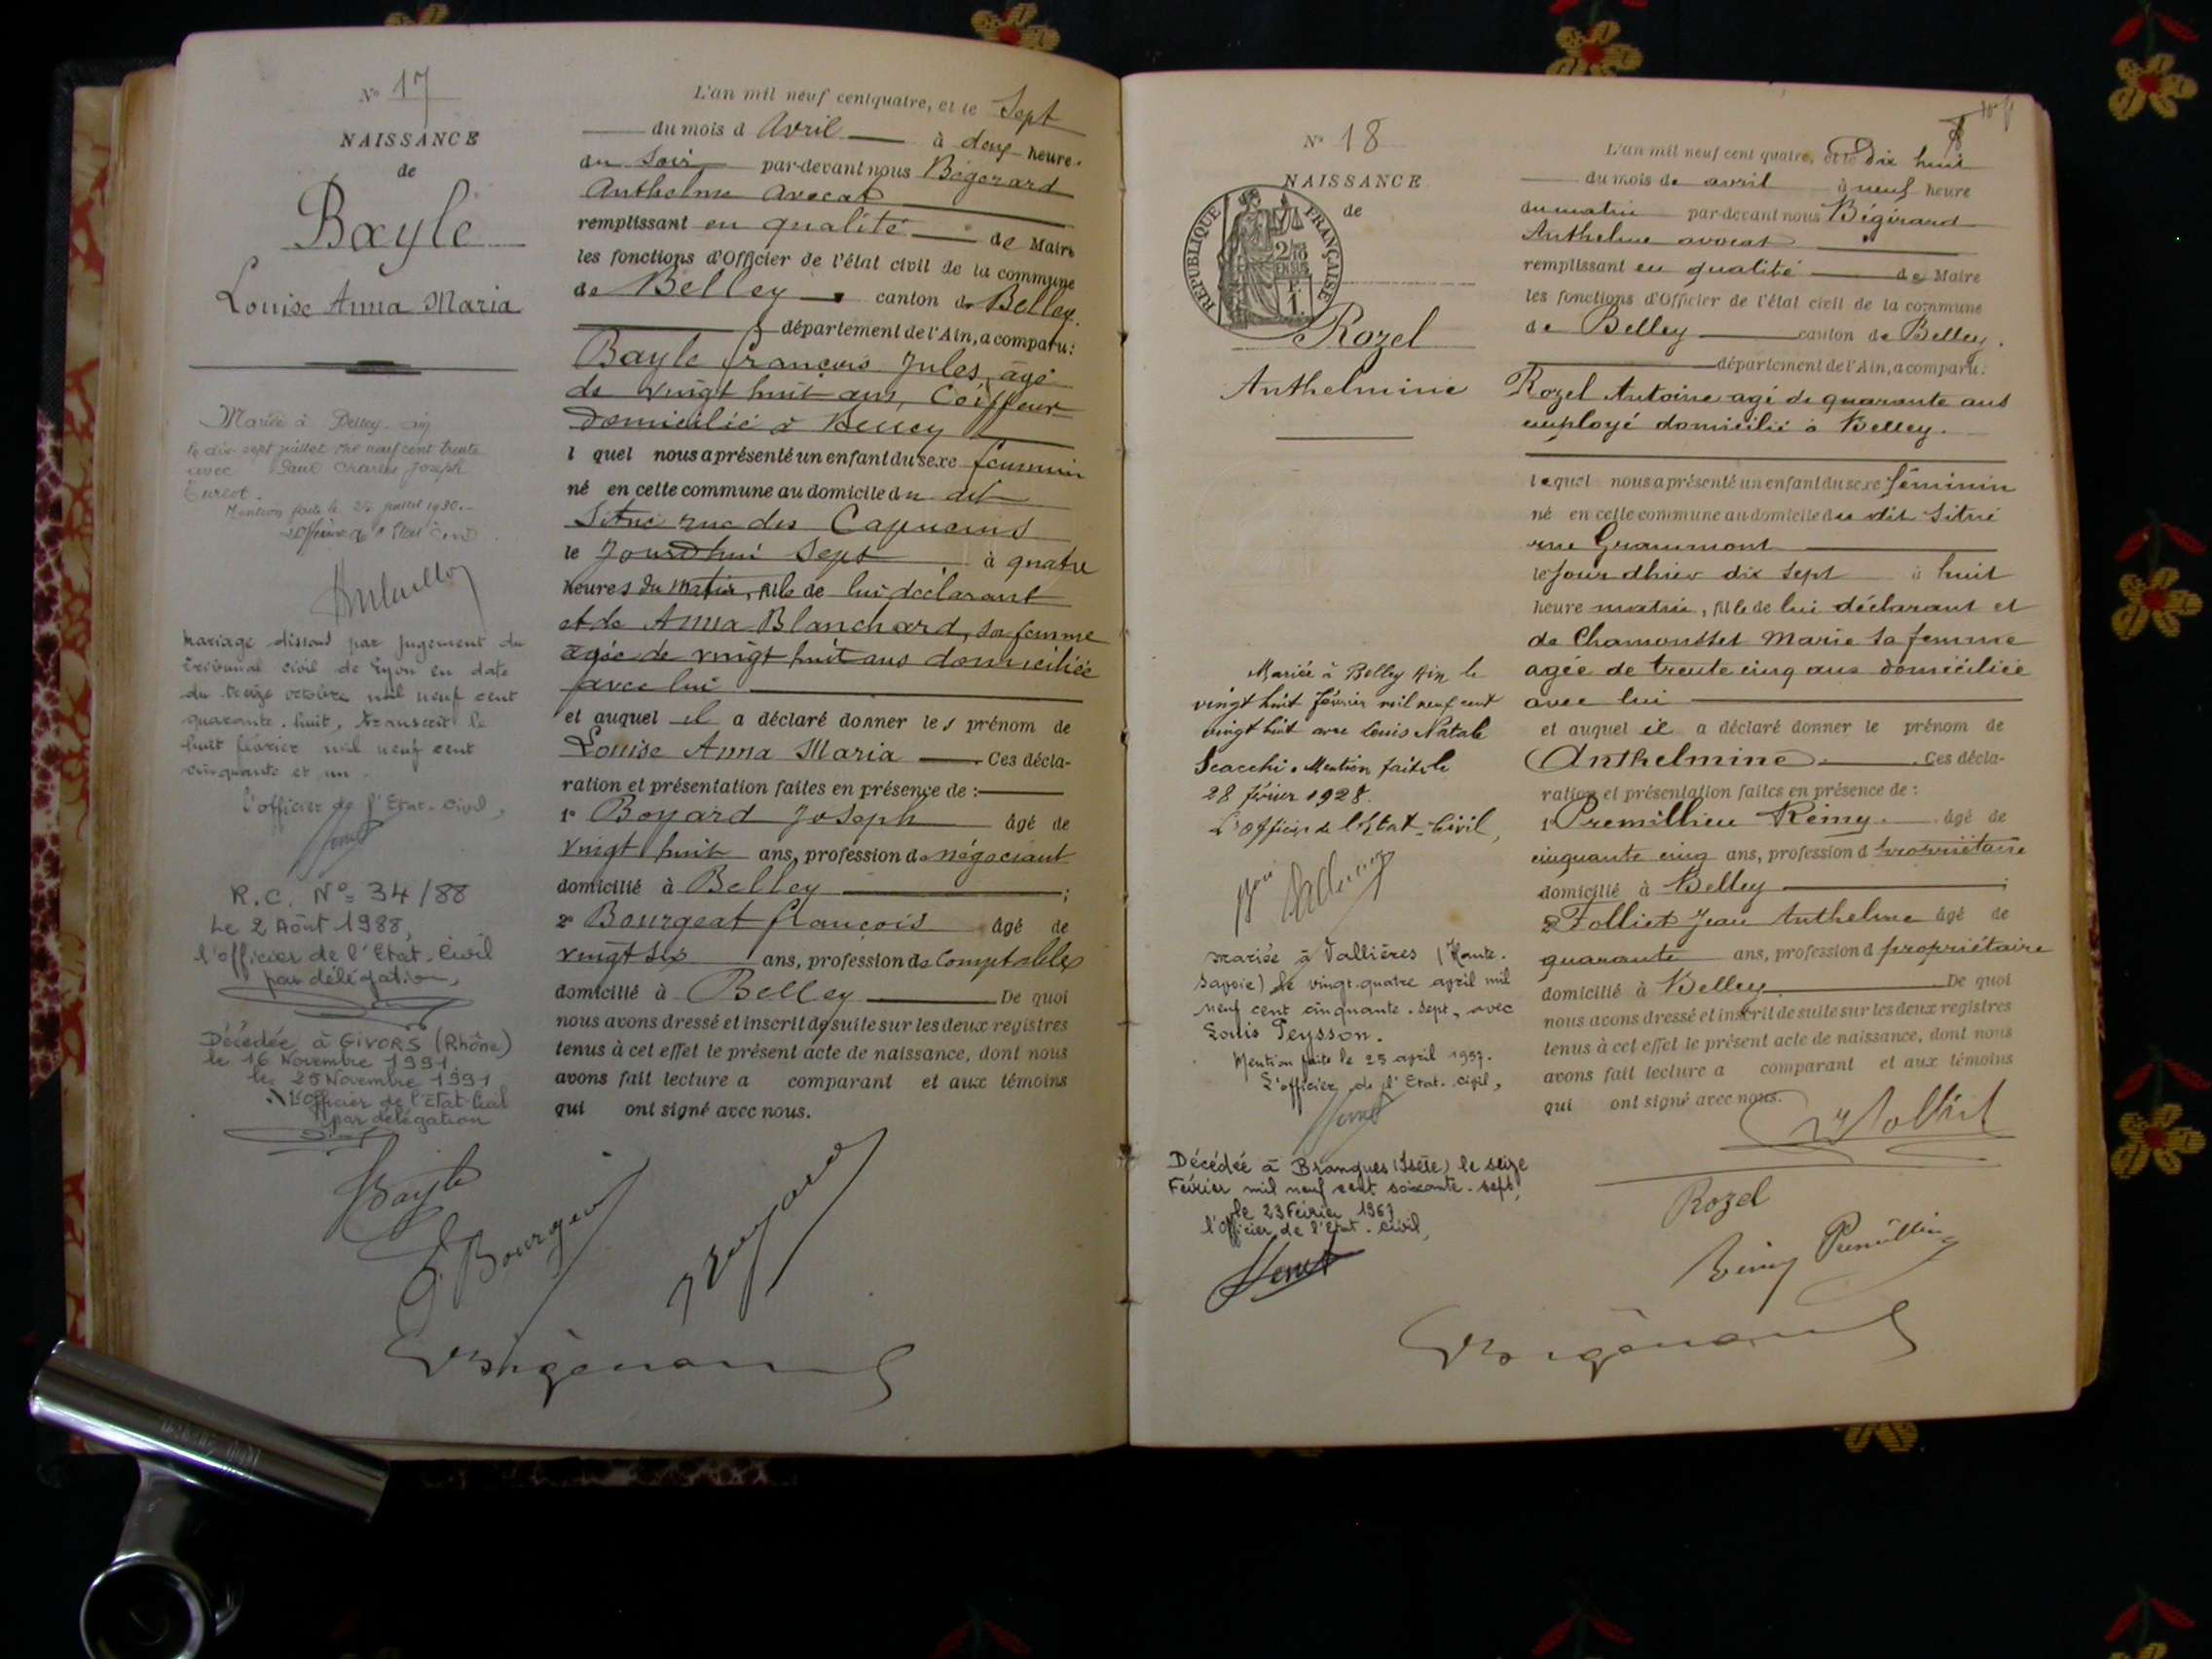 N° 17
NAISSANCE
de
Bayle
Louise Anna Maria
Mariée à Belley Ain
le dix-sept juillet mil neuf cent trente
avec Paul Charles Joseph
Mention faite le juillet 1930.
L'Officier de l'Etat Civil
Mariage dissous par jugement du
Tribunal civil de Lyon en date
du treize octobre mil neuf cent
quarante-huit, transcrit le
huit février mil neuf cent
cinquante et un.
l'officier de l'Etat-Civil,
R.C. N° 34/88
Le 2 Août 1988,
l'officier de l'Etat-Civil
par délégation,
Décédée à GIVORS (Rhône)
le 16 Novembre 1991.
le 25 Novembre 1991
L'Officier de l'Etat-Civil
par délégation
L'an mil neuf cent quatre, et le Sept
du mois d Avril à deux heure.
du Soir par-devant nous Bégerard
Anthelme avocat
remplissant en qualité de Maire
les fonctions d'Officier de l'état civil de la commune
de Belley canton de Belley.
département de l'Ain, a comparu:
Bayle François Jules, âgé
de vingt huit ans, Coiffeur
domicilié à Belley
l quel nous a présenté un enfant du sexe feminin
né en cette commune au domicile du dit
Situé rue des Capucins
le Jourdhui Sept à quatre
heures du matin, fille de lui déclarant
et de Anna Blanchard, sa femme
agée de vingt huit ans domiciliée
avec lui
et auquel il a déclaré donner le s prénom de
Louise Anna Maria Ces décla-
ration et présentation faites en présence de :
1° Boyard Joseph âgé de
vingt huit ans, profession de négociant
domicilié à Belley ;
2° Bourgeat françois âgé de
vingt six ans, profession de Comptable
domicilié à Belley De quoi
nous avons dressé et inscrit de suite sur les deux registres
tenus à cet effet le présent acte de naissance, dont nous
avons fait lecture a comparant et aux témoins
qui ont signé avec nous.
Bayle
Bourgeat
J Boyard
Bégerard
N° 18
NAISSANCE
de
REPUBLIQUE FRANÇAISE
2/10
EN SUS
1
Rozel
Anthelmine
Mariée à Belley Ain le
vingt huit février mil neuf cent
vingt huit avec Louis Natale
Scacchi. Mention faite le
28 février 1928.
L'Officier de l'Etat-Civil,
mariée à Vallières (Haute-
Savoie) le vingt-quatre april mil
neuf cent cinquante-sept, avec
Louis Peysson.
Mention faite le 25 april 1957.
L'officier de l'Etat-civil,
Décédée à Brangues (Isère) le seize
Février mil neuf cent soixante-sept,
le 23 Février 1967
l'Officier de l'Etat-civil,
L'an mil neuf cent quatre, et le Dix huit
du mois de avril à neuf heure
du matin par-devant nous Bégérard
Anthelme avocat
remplissant en qualité de Maire
les fonctions d'Officier de l'état civil de la commune
de Belley canton de Belley.
département de l'Ain, a comparu:
Rozel Antoine agé de quarante ans
employé domicilié à Belley.
lequel nous a présenté un enfant du sexe féminin
né en cette commune au domicile du dit Situé
rue Grammont
le Jour dhier dix sept à huit
heure matin, fille de lui déclarant et
de Chamousset Marie sa femme
agée de trente cinq ans domiciliée
avec lui
et auquel il a déclaré donner le prénom de
Anthelmine Ces décla-
ration et présentation faites en présence de :
1° Premillieu Rémy âgé de
cinquante cinq ans, profession d propriétaire
domicilié à Belley ;
2° Folliet Jean Anthelme âgé de
quarante ans, profession d propriétaire
domicilié à Belley De quoi
nous avons dressé et inscrit de suite sur les deux registres
tenus à cet effet le présent acte de naissance, dont nous
avons fait lecture a comparant et aux témoins
qui ont signé avec nous.
Folliet
Rozel
Rémy Premillieu
Bégerard